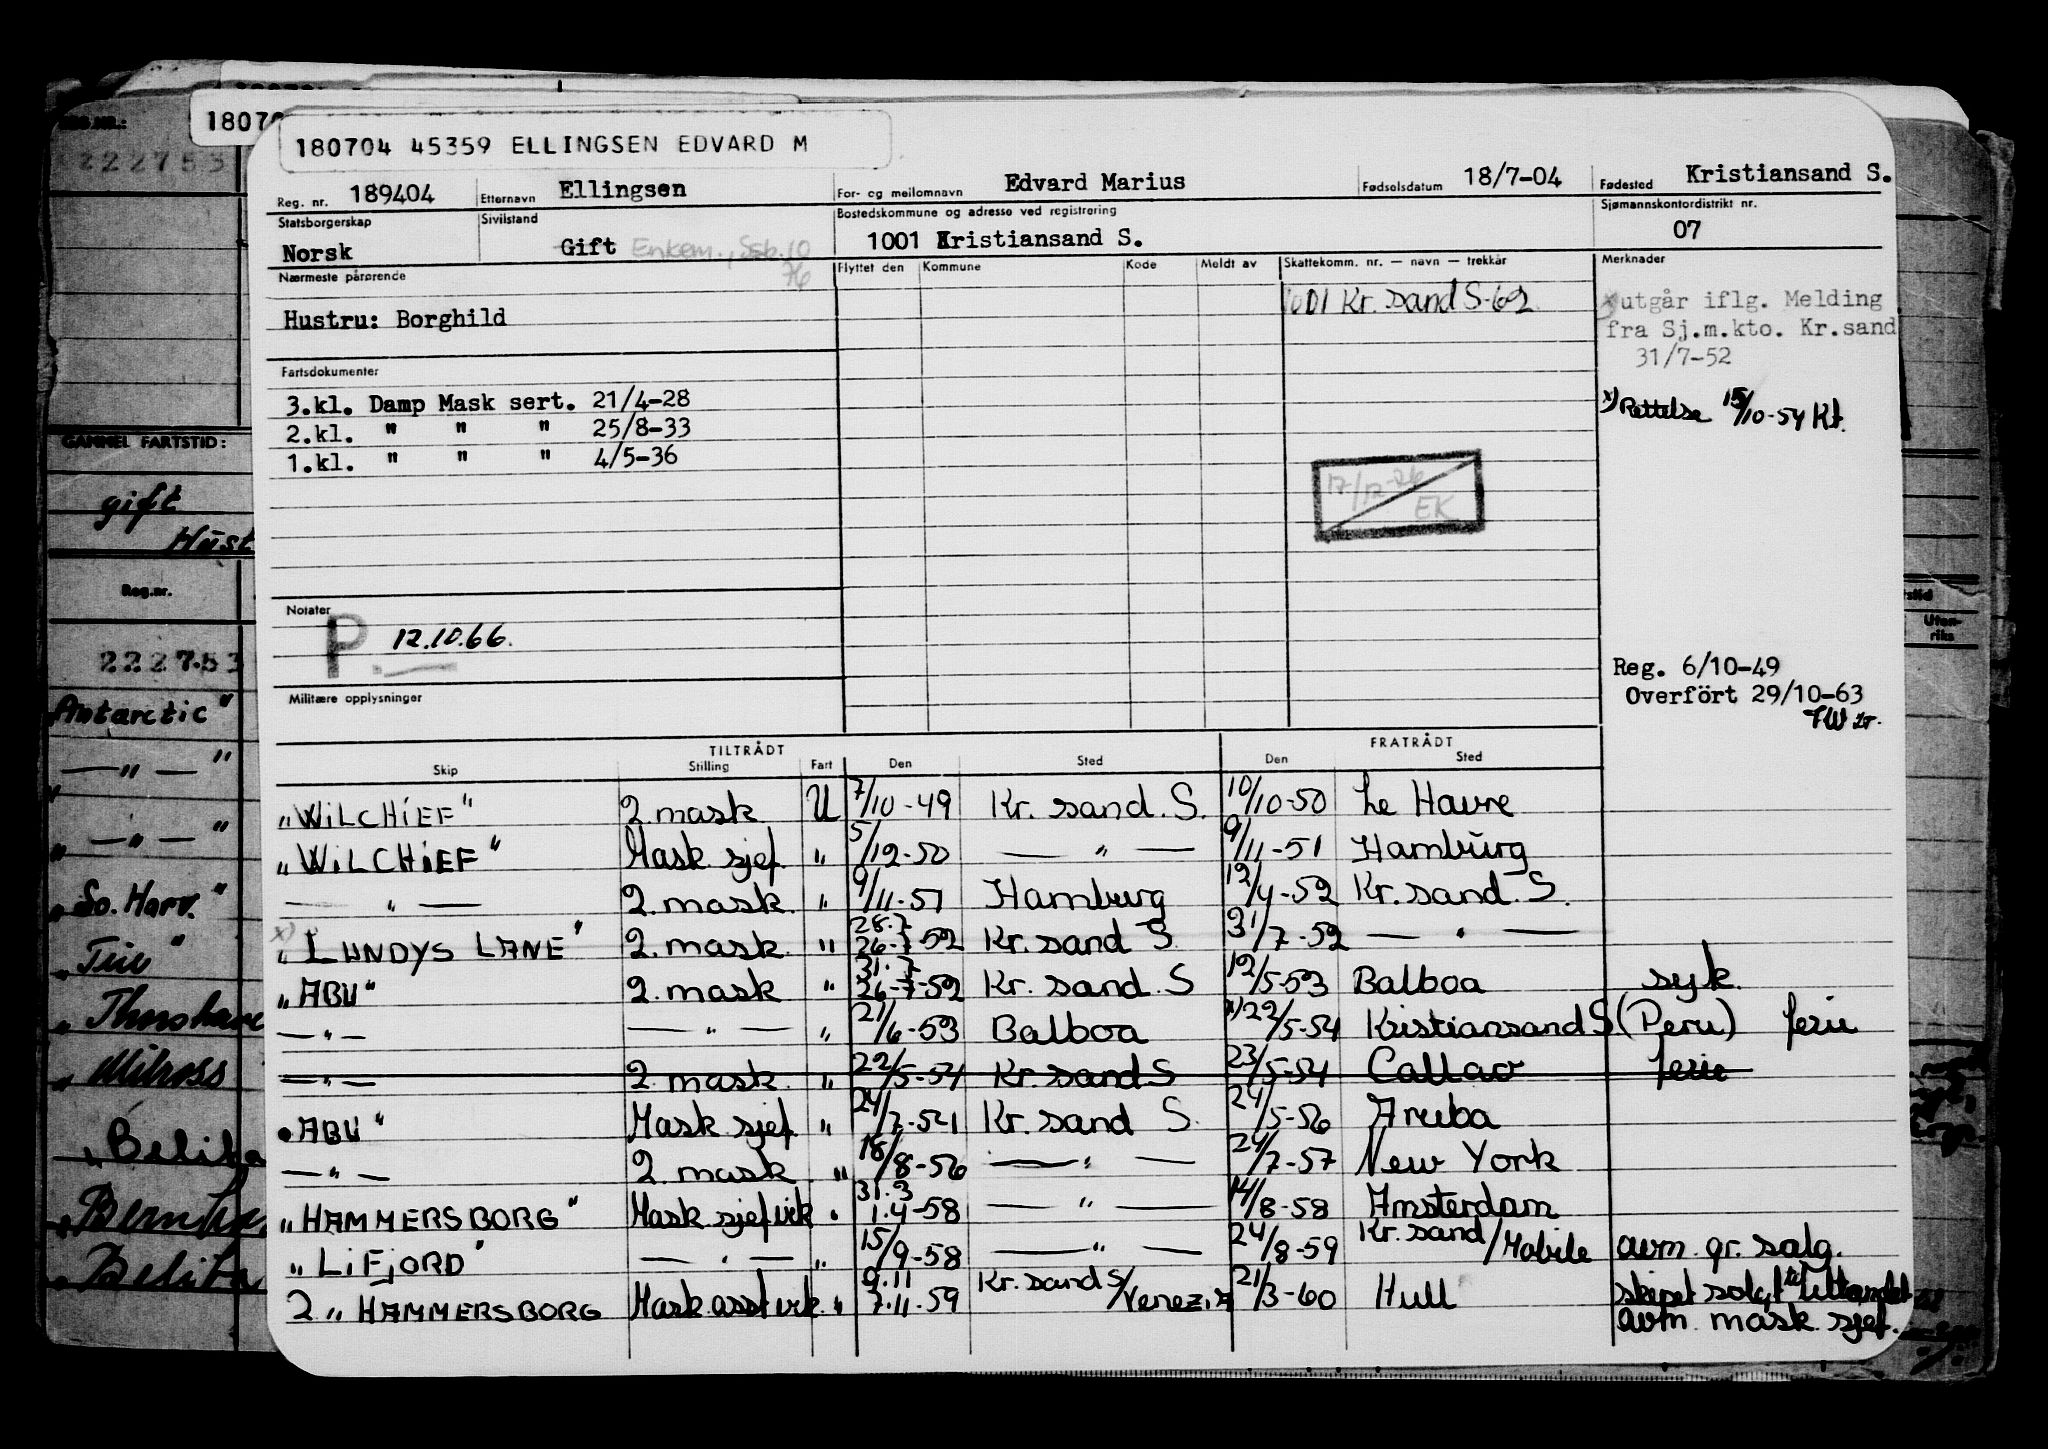 180704 45359 ELLINGSEN EDVARD M
Reg. nr. 189404 Etternavn Ellingsen For- og mellomnavn Edvard Marius Fødselsdatum 18/7-04 Fødested Kristiansand S.
Statsborgerskap Norsk Sivilstand Gift Enkem., Ssb. 10 76 Bostedskommune og adresse ved registrering 1001 Kristiansand S. Sjømannskontordistrikt nr. 07
Nærmeste pårørende Flyttet den Kommune Kode Meldt av Skattekomm. nr. — navn — trekkår Merknader
Hustru: Borghild 1001 Kr. sand S-62
x) utgår iflg. Melding
fra Sj.m.kto. Kr.sand
31/7-52
x) Rettelse 15/10-54 Kt.
Fartsdokumenter
3.kl. Damp Mask sert. 21/4-28
2.kl. " " " 25/8-33
1.kl. " " " 4/5-36
17/12-76
EK
Notater
P. 12.10.66.
Militære opplysninger
Reg. 6/10-49
Overfört 29/10-63
TILTRÅDT FRATRÅDT
Skip Stilling Fart Den Sted Den Sted
„WiLCHiEF" 2. mask U 7/10-49 Kr. sand. S. 10/10-50 Le Havre
„WiLCHiEF" Mask sjef „ 5/12-50 — „ — 9/11-51 Hamburg
— „ — 2. mask. „ 9/11-51 Hamburg 12/4-52 Kr. sand. S.
x) „LUNDYS LANE" 2. mask. „ 28.7 26-7-52 Kr. sand S 31/7-52 — „ —
„ABU" 2. mask „ 31.7 26-7-52 Kr. sand. S 12/5-53 Balboa syk.
— „ — — „ — „ 21/6-53 Balboa x) 22/5-54 Kristiansand S (Peru) ferie
— „ — 2. mask. „ 22/5-54 Kr. sand S 23/5-54 Callao ferie
„ABU" Mask sjef „ 24/7-54 Kr. sand S. 24/5-56 Aruba
— „ — 2. mask. „ 18/8-56 — „ — 24/7-57 New York
„HAMMERSBORG" Mask sjef vik „ 31.3 1.4-58 — „ — 14/8-58 Amsterdam
„LiFjORD" — „ — „ 15/9-58 — „ — 24/8-59 Kr. sand/Mobile avm. gr. salg.
2 „HAMMERSBORG Mask. asst vik. „ 9.11 7.11-59 Kr. sand S/Venezia 21/3-60 Hull skipet solgt til utlandet
avm. mask. sjef.
222753
GAMMEL FARTSTID:
gift
Hust
Reg.nr.
222753
Antarctic"
— „ — "
„ — „ — "
„So. Harv."
„Teie"
„Thorshav
„Milross
„Belita
„Belita
Uten-
riks